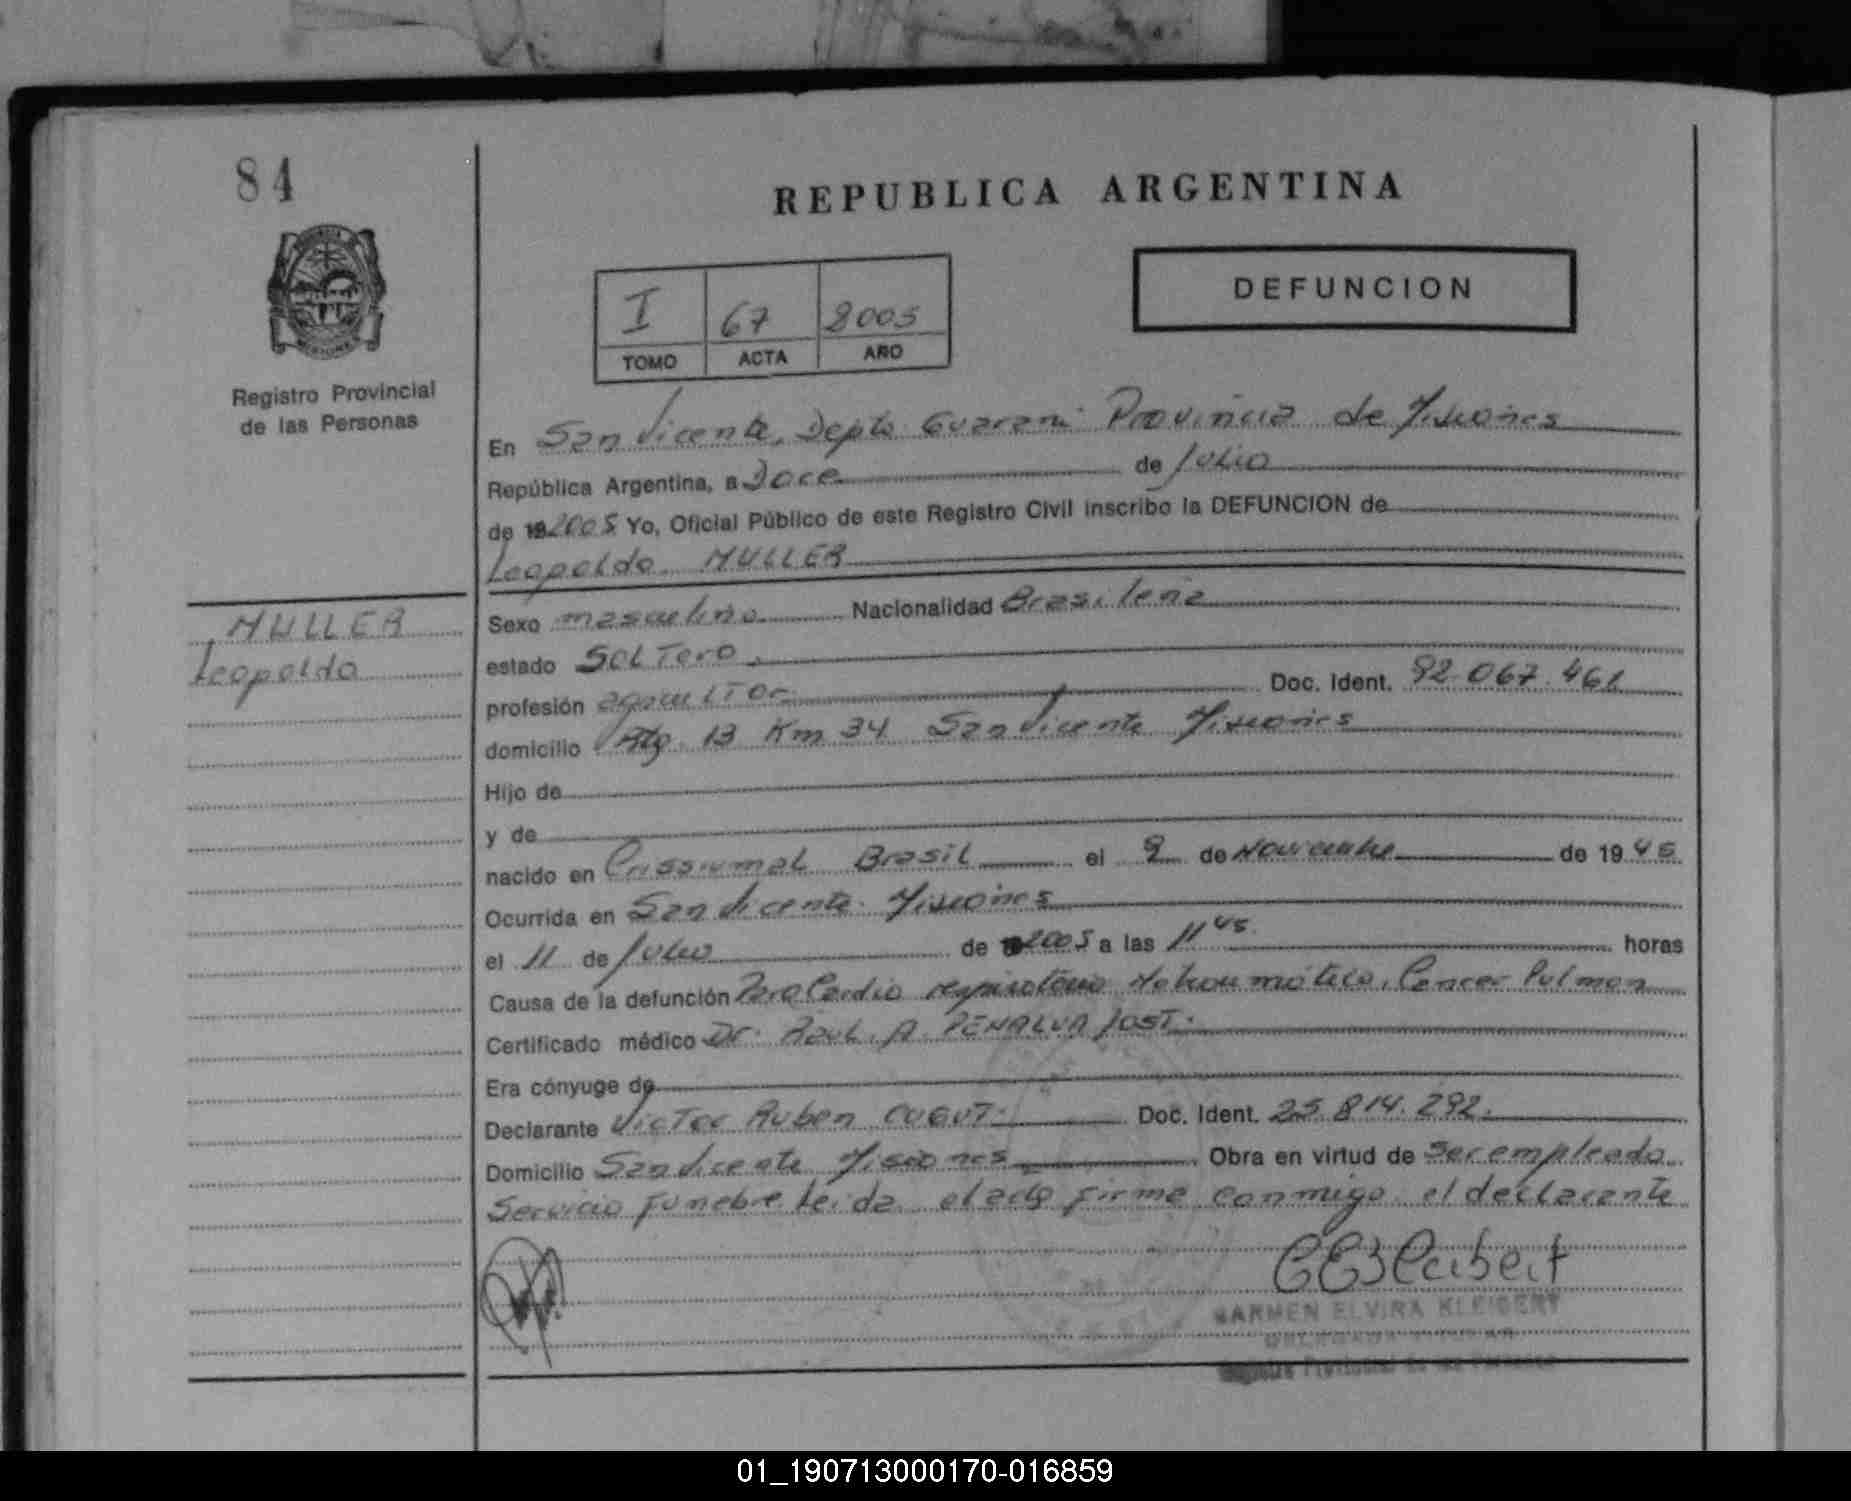 84
REPUBLICA ARGENTINA
DEFUNCION
I 67 2005
TOMO ACTA AÑO
Registro Provincial
de las Personas
En San Vicente, Depto Guarani Provincia de Misiones
República Argentina, a Doce de Julio
de 19 2005 Yo, Oficial Público de este Registro Civil inscribo la DEFUNCION de
Leopoldo MULLER
MULLER
Leopoldo
Sexo masculino Nacionalidad Brasileña
estado Soltero
profesión agricultor Doc. Ident. 92.067.461
domicilio Ruta 13 Km 34 San Vicente Misiones
Hijo de
y de
nacido en Crissiumal Brasil el 9 de Noviembre de 19 45
Ocurrida en San Vicente Misiones
el 11 de Julio de 2005 a las 11 45 horas horas
Causa de la defunción Paro Cardio respiratorio No traumático, Cancer Pulmon
Certificado médico Dr. Raul. A. PENALVA JOST.
Era cónyuge de
Declarante Victor Ruben CUGUT. Doc. Ident. 25.814.292.
Domicilio San Vicente Misiones Obra en virtud de ser empleado
Servicio Funebre. Leida el acta firma conmigo el declarante
CEKleibert
CARMEN ELVIRA KLEIBERT
Registro Provincial de las Personas
01_190713000170-016859